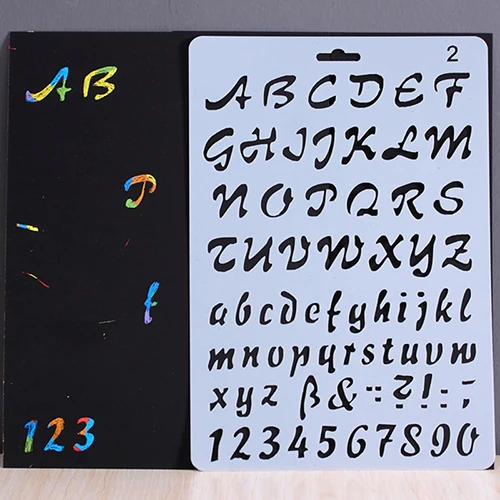 2
A B
P
f
1 2 3
A B C D E F
G H I J K L M
N O P Q R S
T U V W X Y Z
a b c d e f g h i j k l
m n o p q r s t u v w
x y z ß & : ? ! : ;
1 2 3 4 5 6 7 8 9 0